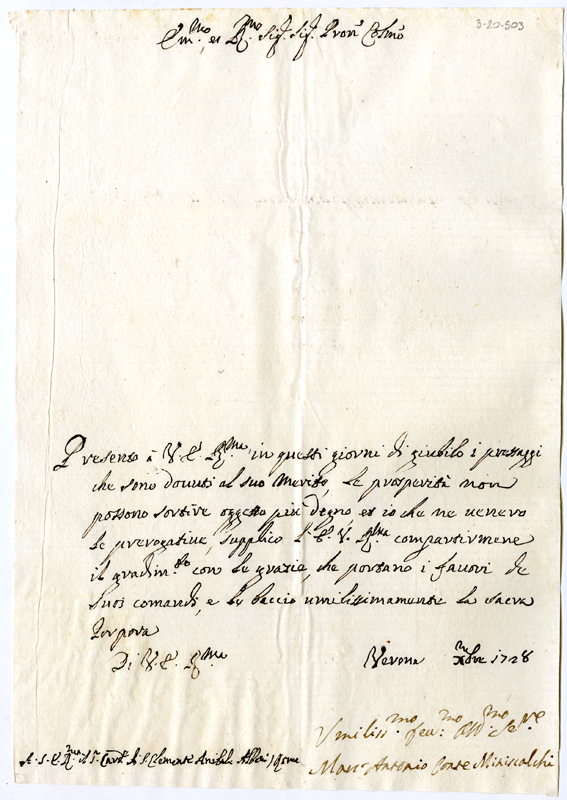 3-20-503
Em.mo et R.mo Sig.r Sig.r Pron. Colmo
Presento à V. E. R.ma in questi giorni di giubilo i pressaggi
che sono douuti al suo Merito, Le prosperità non
possono sortire oggetto più degno et io che ne uenero
le prerogatiue, supplico l'E. V. R.ma compartirmene
il gradim.to con le grazie, che portano i fauori de
suoi comandi, e le baccio umilissimamente la sacra
Porpora
Di V. E. R.ma Verona Xbre 1728
Vmiliss.mo Deu.mo Obb.mo Se.re
Marc Antonio Conte Miniscalchi
A. S. E. R.ma il S.r Card. di S. Clemente Anibale Albani, Roma